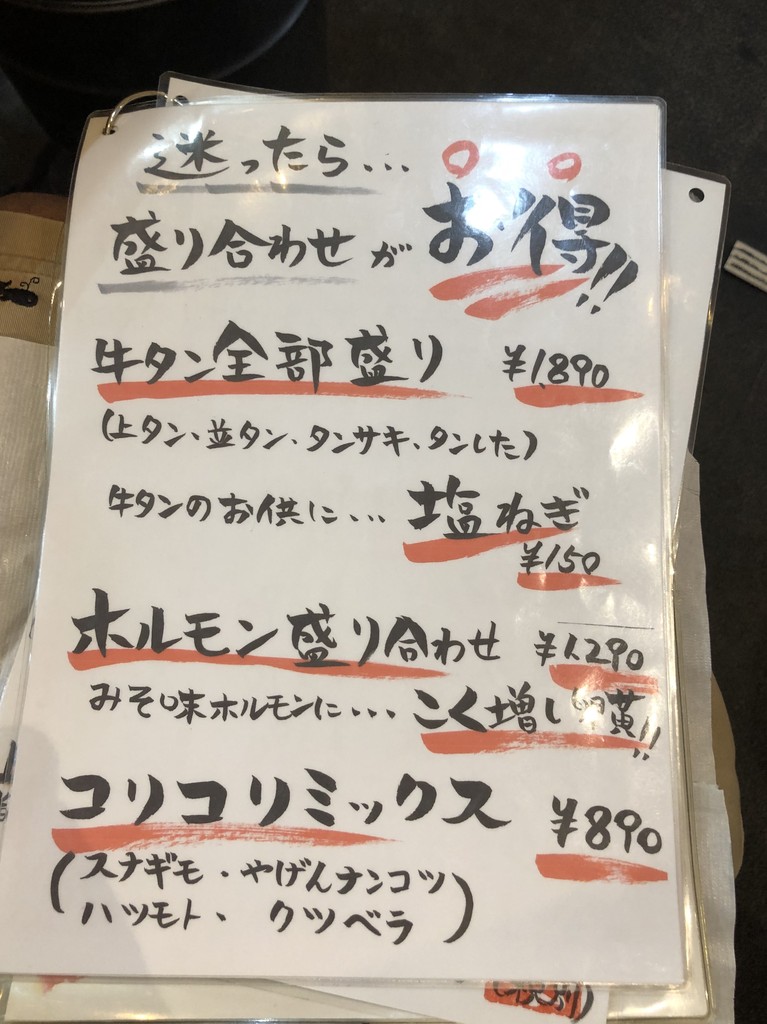 迷ったら...
盛り合わせがお得!!
牛タン全部盛り ¥1,890
(上タン、並タン、タンサキ、タンした)
牛タンのお供に... 塩ねぎ
¥150
ホルモン盛り合わせ ¥1,290
みそ味ホルモンに... こく増し卵黄!!
コリコリミックス ¥890
(スナギモ・やげんナンコツ
ハツモト・クツベラ)